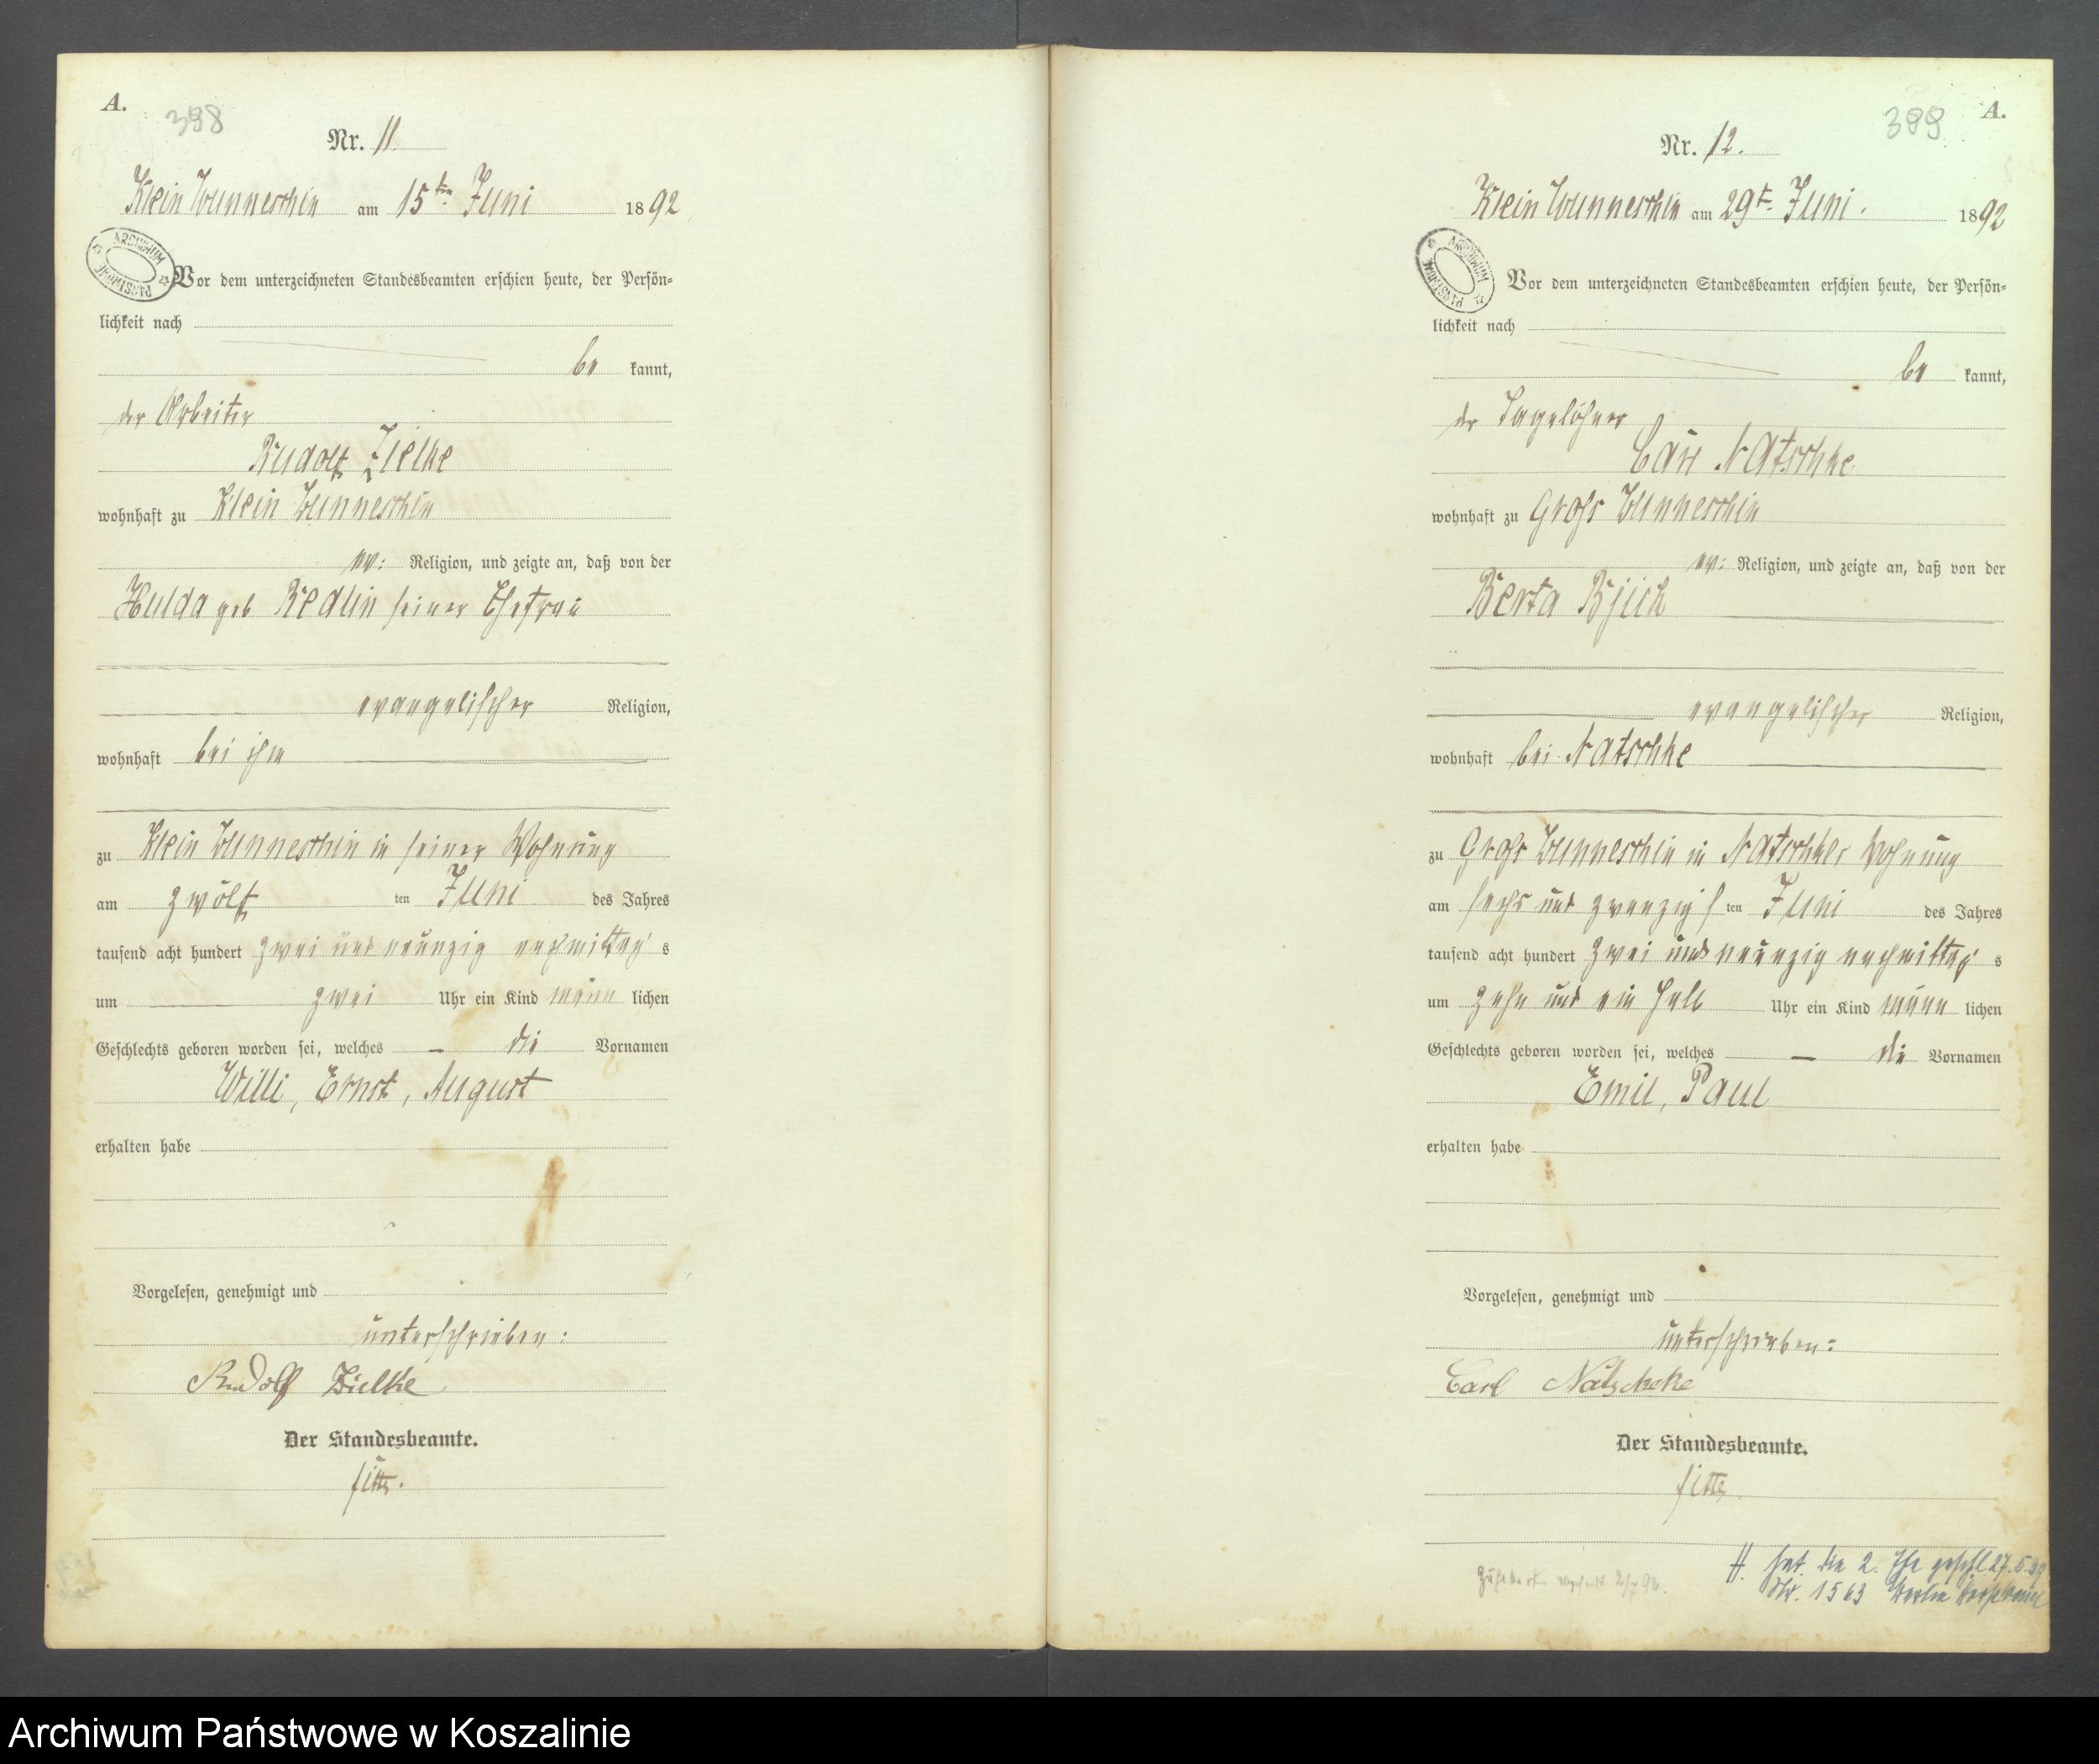 A.
398
Nr. 11.
Klein Wunneschin am 15ten Juni 1892
ARCHIWUM PAŃSTWOWE
Vor dem unterzeichneten Standesbeamten erschien heute, der Persön-
lichkeit nach
be kannt,
der Arbeiter
Rudolf Zielke
wohnhaft zu Klein Wunneschin
ev: Religion, und zeigte an, daß von der
Hulda geb Redlin seiner Ehefrau
evangelischer Religion,
wohnhaft bei ihm
zu Klein Wunneschin in seiner Wohnung
am zwölf ten Juni des Jahres
tausend acht hundert zwei und neunzig nachmittag s
um zwei Uhr ein Kind männ lichen
Geschlechts geboren worden sei, welches – die Vornamen
Willi, Ernst, August
erhalten habe
Vorgelesen, genehmigt und
unterschrieben:
Rudolf Zielke
Der Standesbeamte.
A.
399
Nr. 12.
Klein Wunneschin am 29t. Juni. 1892
ARCHIWUM PAŃSTWOWE
Vor dem unterzeichneten Standesbeamten erschien heute, der Persön-
lichkeit nach
be kannt,
der Tagelöhner
Carl Natschke
wohnhaft zu Groß Wunneschin
ev: Religion, und zeigte an, daß von der
Berta
evangelischer Religion,
wohnhaft bei Natschke
zu Groß Wunneschin in Natschkes Wohnung
am sechs und zwanzigs ten Juni des Jahres
tausend acht hundert zwei und neunzig nachmittag s
um zehn und ein halb Uhr ein Kind männ lichen
Geschlechts geboren worden sei, welches – die Vornamen
Emil, Paul
erhalten habe
Vorgelesen, genehmigt und
unterschrieben:
Carl Natscheke
Der Standesbeamte.
hat die 2. Ehe geschl 27.5.39
Nr. 1563 Berlin
Archiwum Państwowe w Koszalinie